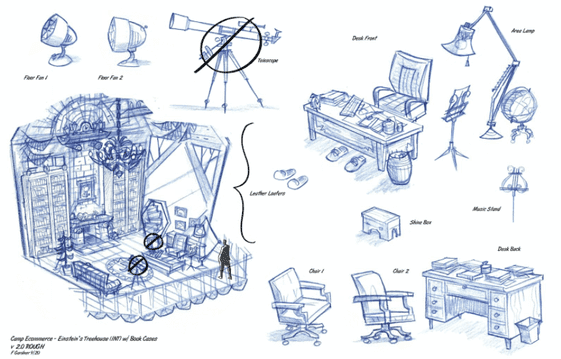 Floor Fan 1
Floor Fan 2
Telescope
Desk Front
Area Lamp
Leather Loafers
Music Stand
Shine Box
Chair 1
Chair 2
Desk Back
Camp Ecommerce - Einstein's Treehouse (INT) w/ Book Cases
v 2.0 ROUGH
F Gardner 9/20